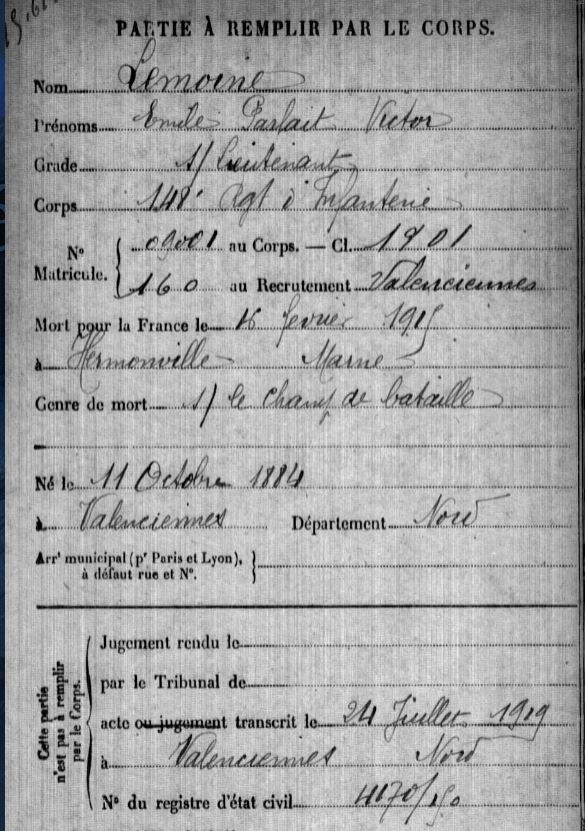 PARTIE À REMPLIR PAR LE CORPS.
Nom Lemoine
Prénoms Emile Parfait Victor
Grade s/ Lieutenant
Corps 148e Rgt d'Infanterie
No Matricule. 09001 au Corps. — Cl. 1901
160 au Recrutement Valenciennes
Mort pour la France le 16 fevrier 1915
à Hermonville Marne
Genre de mort s/ le champ de bataille
Né le 11 Octobre 1884
à Valenciennes Département Nord
Arrt municipal (pr Paris et Lyon),
à défaut rue et No.
Cette partie n'est pas à remplir par le Corps.
Jugement rendu le
par le Tribunal de
acte ou jugement transcrit le 24 Juillet 1919
à Valenciennes Nord
No du registre d'état civil 4170/